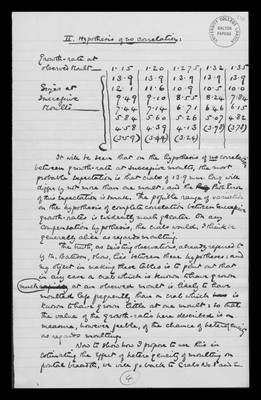 UNIVERSITY COLLEGE
GALTON PAPERS
II. Hypothesis of no correlation:
Growth-rate at observed Moult — 1·15 1·20 1·275 1·32 1·35
Sizes at Successive Moults —
13·9 13·9 13·9 13·9 13·9
12·1 11·6 10·9 10·5 10·0
9·49 9·10 8·55 8·24
7·44 7·14 6·71 6·46 6·15
5·84 5·60 5·26 5·07 4·82
4·58 4·39 4·13 (3·98) (3·78)
(3·59) (3·44) (3·24)
It will be seen that on the hypothesis of no correlation
between growth-rate at successive moults, the most
probable expectation is that crabs of 13·9 mm. long will
differ by not more than one moult: and the Prob. Error
of this expectation is small. The possible range of variation
on the hypothesis of complete correlation between successive
growth-rates is evidently much greater. On any
compensation hypothesis, the crabs would, I think be
generally alike as regards moulting.
The truth, as existing observations, already referred to
by Mr. Galton, show, lies between these hypotheses: and
my object in making these tables is to point out that
in any case a crab which is known to have grown
much at an observed moult is likely to have
moulted less frequently, than a crab which is
known to have grown little at one moult: so that
the value of the growth-ratio here described is a
measure, however feeble, of the chance of heterogeneity
as regards moulting.
Now to show how I propose to use this in
estimating the effect of heterogeneity of moulting on
frontal breadth, we will go back to Crabs No. 1 and 2